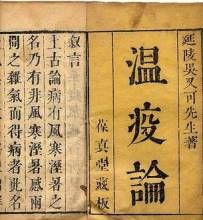 延陵吳又可先生著
温疫論
葆真堂藏板
叙言
上古論病有風寒溼暑之
名乃有非風寒溼暑感兩
間之雜氣而得病者此名